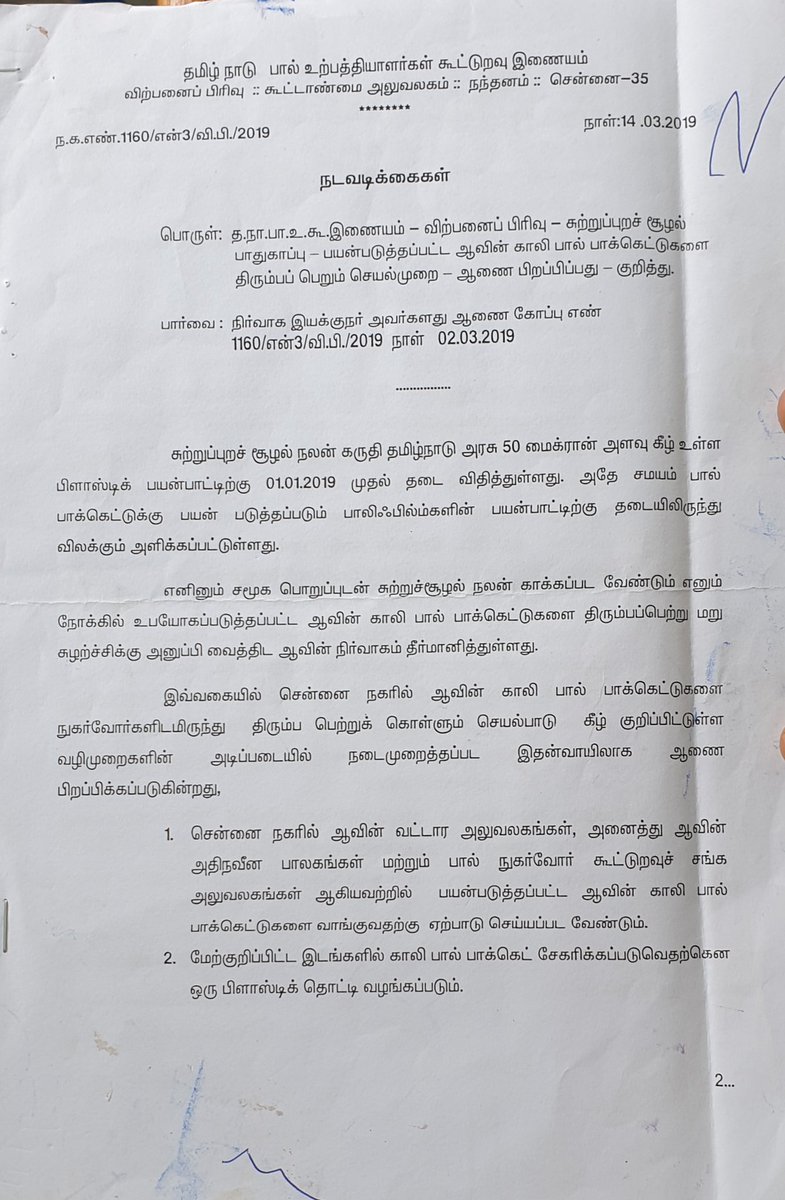 தமிழ் நாடு பால் உற்பத்தியாளர்கள் கூட்டுறவு இணையம்
விற்பனைப் பிரிவு :: கூட்டாண்மை அலுவலகம் :: நந்தனம் :: சென்னை–35
********
ந.க.எண்.1160/என்3/வி.பி./2019 நாள்:14 .03.2019
நடவடிக்கைகள்
பொருள்: த.நா.பா.உ.கூ.இணையம் – விற்பனைப் பிரிவு – சுற்றுப்புறச் சூழல்
பாதுகாப்பு – பயன்படுத்தப்பட்ட ஆவின் காலி பால் பாக்கெட்டுகளை
திரும்பப் பெறும் செயல்முறை – ஆணை பிறப்பிப்பது – குறித்து.
பார்வை : நிர்வாக இயக்குநர் அவர்களது ஆணை கோப்பு எண்
1160/என்3/வி.பி./2019 நாள் 02.03.2019
................
சுற்றுப்புறச் சூழல் நலன் கருதி தமிழ்நாடு அரசு 50 மைக்ரான் அளவு கீழ் உள்ள
பிளாஸ்டிக் பயன்பாட்டிற்கு 01.01.2019 முதல் தடை விதித்துள்ளது. அதே சமயம் பால்
பாக்கெட்டுக்கு பயன் படுத்தப்படும் பாலிஃபில்ம்களின் பயன்பாட்டிற்கு தடையிலிருந்து
விலக்கும் அளிக்கப்பட்டுள்ளது.
எனினும் சமூக பொறுப்புடன் சுற்றுச்சூழல் நலன் காக்கப்பட வேண்டும் எனும்
நோக்கில் உபயோகப்படுத்தப்பட்ட ஆவின் காலி பால் பாக்கெட்டுகளை திரும்பப்பெற்று மறு
சுழற்ச்சிக்கு அனுப்பி வைத்திட ஆவின் நிர்வாகம் தீர்மானித்துள்ளது.
இவ்வகையில் சென்னை நகரில் ஆவின் காலி பால் பாக்கெட்டுகளை
நுகர்வோர்களிடமிருந்து திரும்ப பெற்றுக் கொள்ளும் செயல்பாடு கீழ் குறிப்பிட்டுள்ள
வழிமுறைகளின் அடிப்படையில் நடைமுறைத்தப்பட இதன்வாயிலாக ஆணை
பிறப்பிக்கப்படுகின்றது,
1. சென்னை நகரில் ஆவின் வட்டார அலுவலகங்கள், அனைத்து ஆவின்
அதிநவீன பாலகங்கள் மற்றும் பால் நுகர்வோர் கூட்டுறவுச் சங்க
அலுவலகங்கள் ஆகியவற்றில் பயன்படுத்தப்பட்ட ஆவின் காலி பால்
பாக்கெட்டுகளை வாங்குவதற்கு ஏற்பாடு செய்யப்பட வேண்டும்.
2. மேற்குறிப்பிட்ட இடங்களில் காலி பால் பாக்கெட் சேகரிக்கப்படுவெதற்கென
ஒரு பிளாஸ்டிக் தொட்டி வழங்கப்படும்.
2...